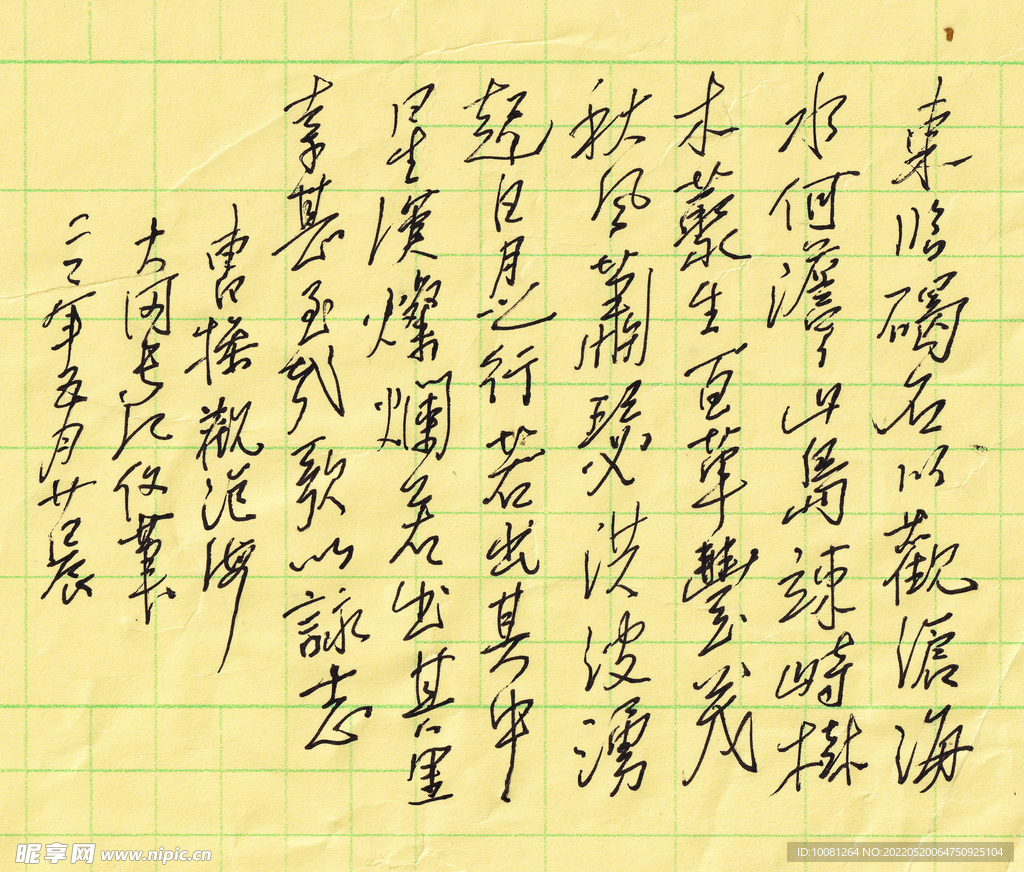 東临碣石以觀滄海
水何澹々山島竦峙樹
木藂生百草豐茂
秋風蕭瑟洪波湧
起日月之行若出其中
星漢燦爛若出其里
幸甚至哉歌以詠志
曹操觀沧海
大河长江筆
二二年五月廿晨
昵享网 www.nipic.cn
ID:10081264 NO:20220520064750925104